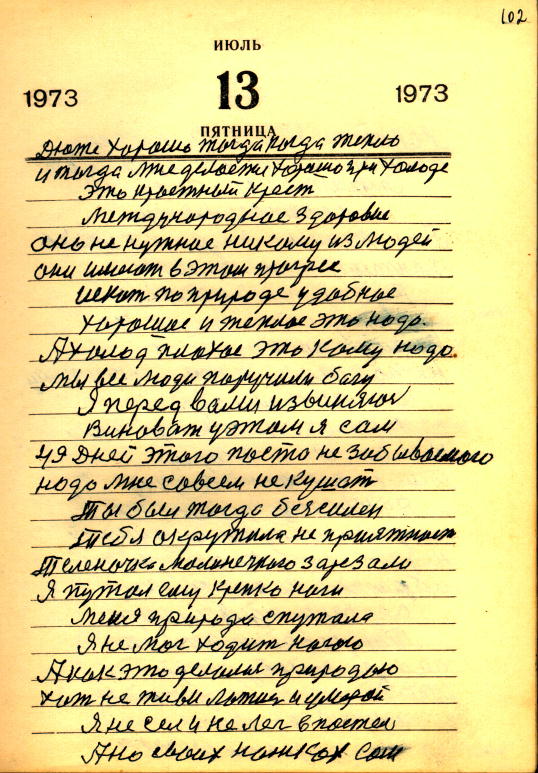 102
ИЮЛЬ
1973 13 1973
ПЯТНИЦА
Дюже хорошо тогда когда тепло
и тогда мне делается хорошо при холоде
Это крест
Международное здоровие
оно не нужное никому из людей
они имеют в этом прогрес
Искат по природе удобное
хорошое и теплое это надо.
А холод плохое это кому надо
мы все люди поручили богу
Я перед вами извиняюс
Виноват у этом я сам
49 дней этого поста не забываемого
надо мне совсем не кушат
Ты был тогда безсилен
Тебя окружила не приятност
Теленочка малинечкого зарезали
Я путал ему крепко ноги
Меня природа спутала
Я не мог ходит ногою
А как это делали природою
хот не живи ложис и умирай
Я не сел и не лег в постел
А на своих ножках сам